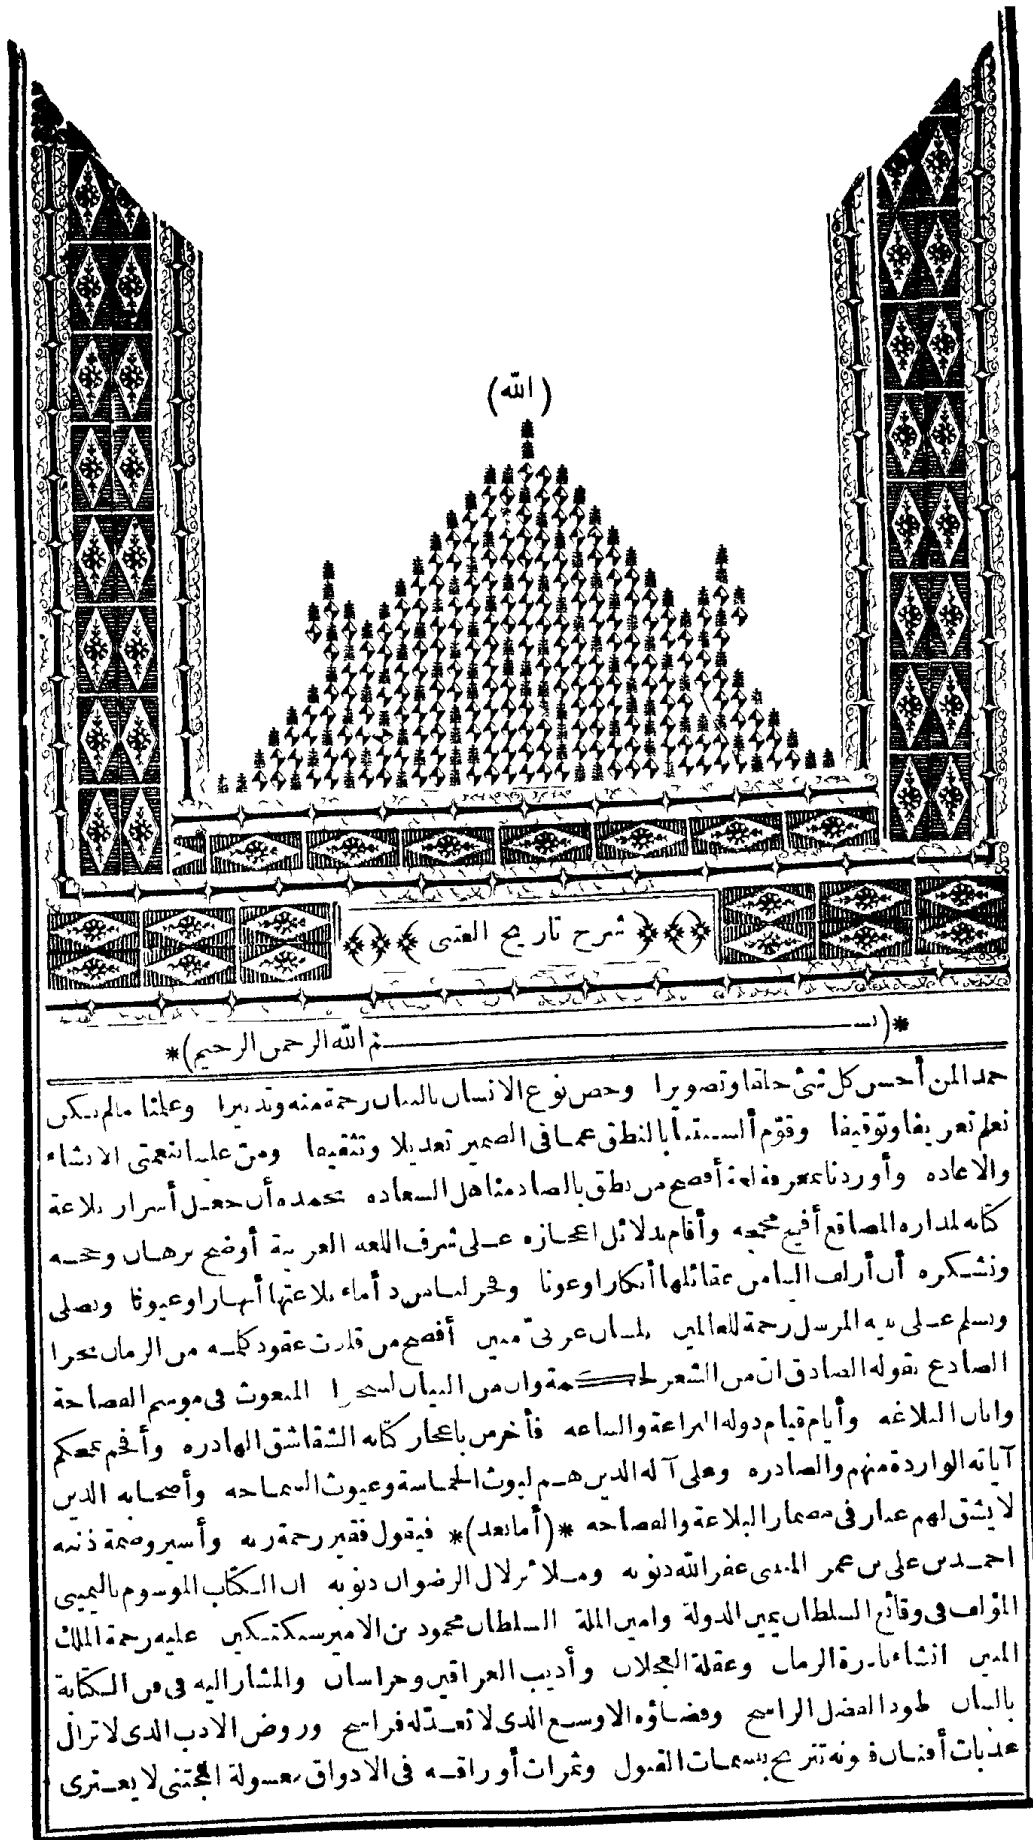 (الله)
شرح تاريخ العتبى
*(بسم الله الرحمن الرحيم)*
حمدا لمن أحسن كل شئ خلقا وتصويرا وخص نوع الانسان بالبيان رحمة منه وتدبيرا وعلمنا ما لم نكن
نعلم تعريفا وتوقيفا وقوّم ألسنتنا بالنطق عما فى الضمير تعديلا وتثقيفا ومنّ علينا بنعمتى الانشاء
والاعاده وأوردنا بمعرفة لغة أفصح من نطق بالضاد مناهل السعاده نحمده أن جعل أسرار بلاغة
كتابه لمداره المصاقع أفيح محجه وأقام بدلائل اعجازه على شرف اللغه العربية أوضح برهان وحجه
ونشكره أن أزلف الينا من عقائلها أبكارا وعونا وفجر لنا من دأماء بلاغتها أنهارا وعيونا ونصلى
ونسلم على نبيه المرسل رحمة للعالمين بلسان عربىّ مبين أفصح من قلدت عقود كلمه من الزمان نحرا
الصادع بقوله الصادق ان من الشعر لحكمة وان من البيان لسحرا المبعوث فى موسم الفصاحة
وابان البلاغه وأيام قيام دولة البراعة والساعه فأخرس باعجاز كتابه الشقاشق الهادره وأفحم بمحكم
آياته الواردة منهم والصادره وعلى آله الذين هم ليوث الحماسة وغيوث السماحه وأصحابه الذين
لا يشق لهم غبار فى مضمار البلاغة والفصاحه *(أما بعد)* فيقول فقير رحمة ربه وأسير وصمة ذنبه
احمد بن على بن عمر المنينى غفر الله ذنوبه وملأ بزلال الرضوان ذنوبه ان الكتاب الموسوم باليمينى
المؤلف فى وقائع السلطان يمين الدولة وامين الملة السلطان محمود بن الامير سبكتكين عليه رحمة الملك
المبين انشاء نادرة الزمان وعقلة العجلان وأديب العراقين وخراسان والمشار اليه فى فن الكتابة
بالبنان طود الفضل الراسخ وفضاؤه الاوسع الذى لا تعدّ له فراسخ وروض الادب الذى لا تزال
عذبات أفنان فنونه تترنح بنسمات القبول وثمرات أوراقه فى الاذواق معسولة المجتنى لا يعترى